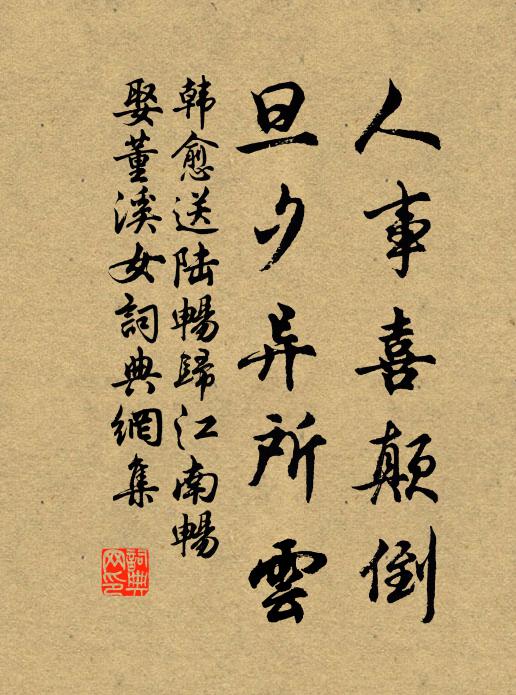 人事喜顛倒
旦夕异所雲
韩愈送陆暢歸江南暢
娶董溪女詞典網集
詞典網印